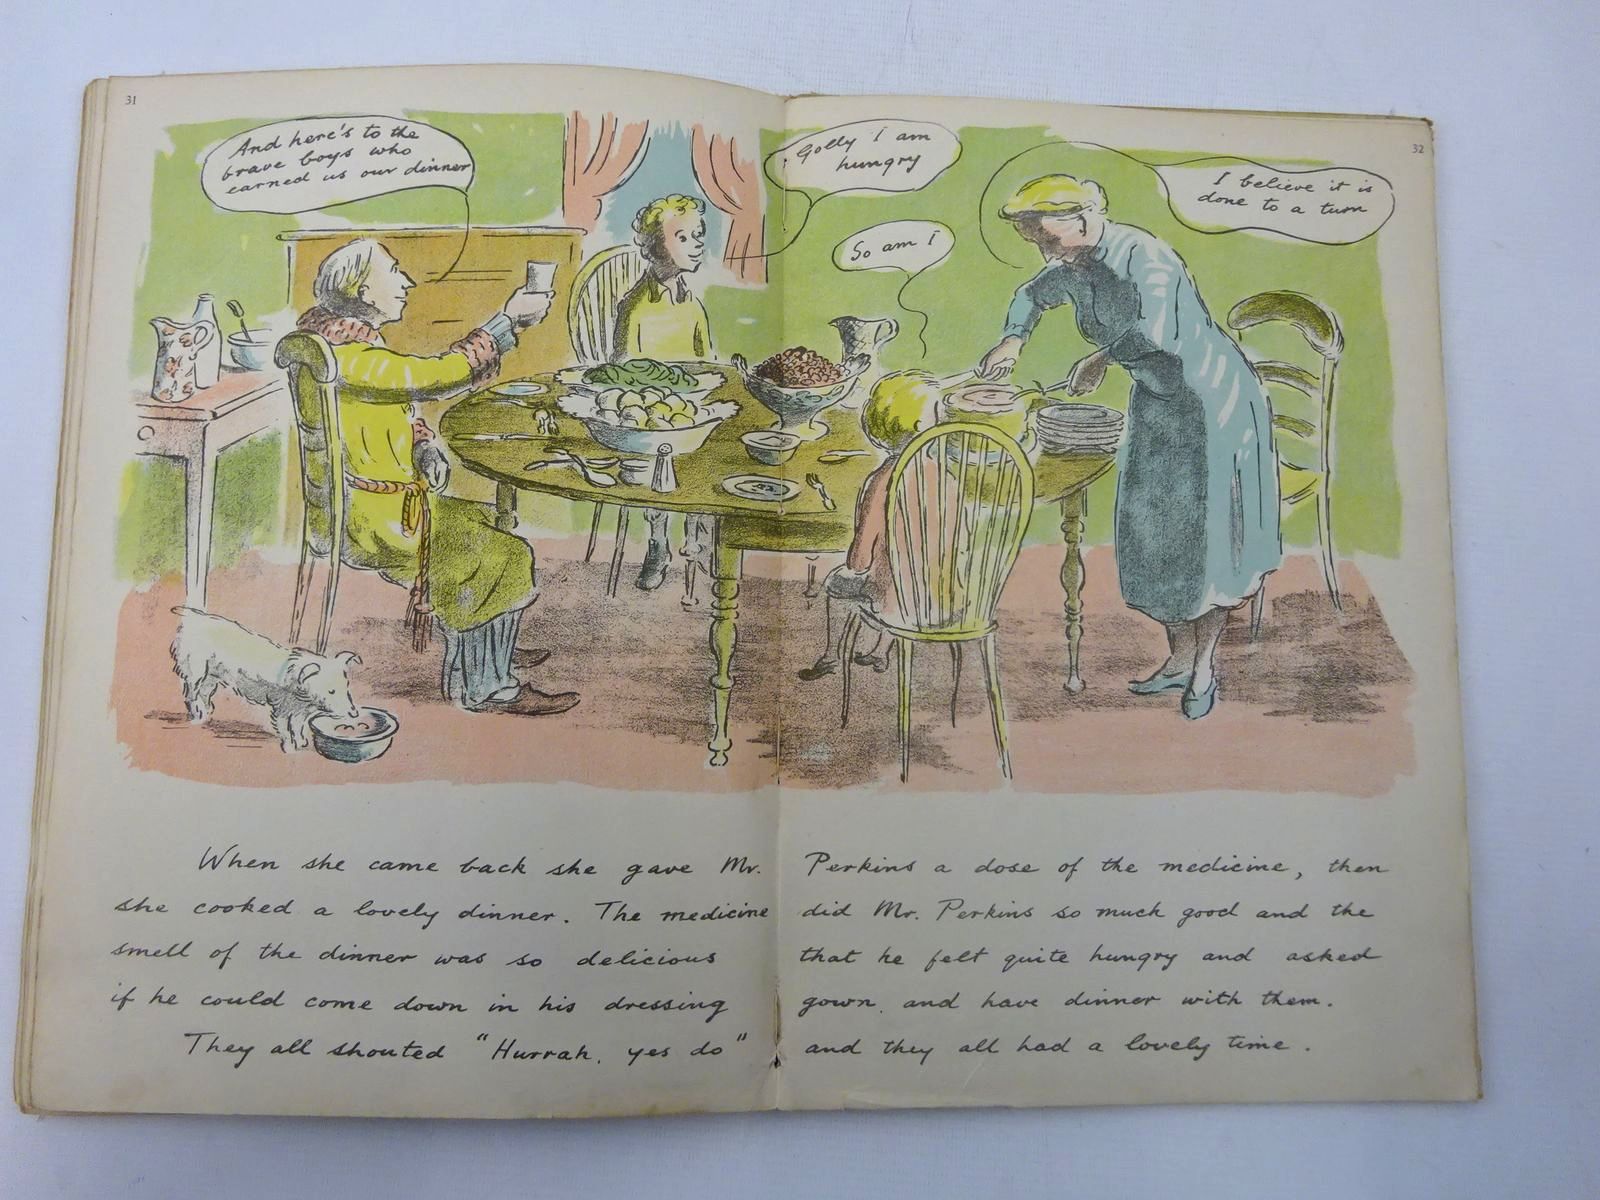 31
And here's to the
brave boys who
earned us our dinner
Golly I am
hungry
So am I
32
I believe it is
done to a turn
When she came back she gave Mr. Perkins a dose of the medicine, then
she cooked a lovely dinner. The medicine did Mr. Perkins so much good and the
smell of the dinner was so delicious that he felt quite hungry and asked
if he could come down in his dressing gown, and have dinner with them.
They all shouted "Hurrah, yes do" and they all had a lovely time.